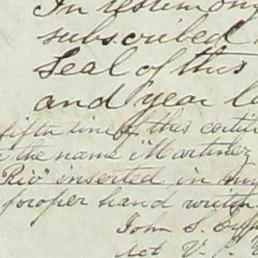 In testimony
subscribed
Seal of this
and year
fifth line of this certi
the name "Martinez
Rio" inserted in my
proper hand writin
John S.
act V.